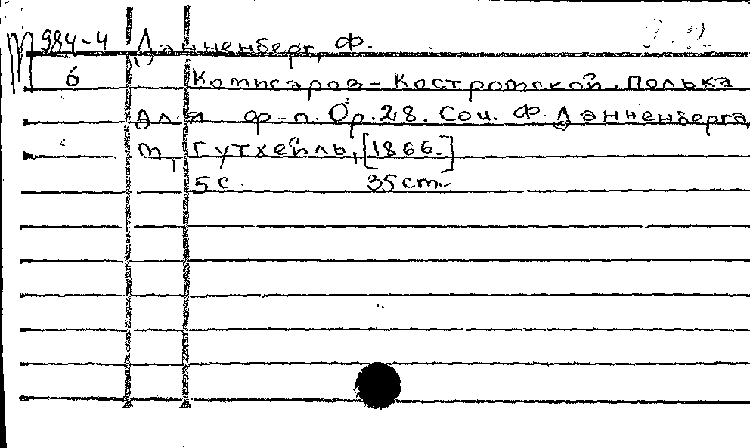 М 994-4 Данненберг, Ф.
6 Комисаров-Костромской. Полька
Для ф-п. Op. 28. Соч. Ф. Данненберга
М., Гутхейль, [1866.]
5 с. 35 cm.